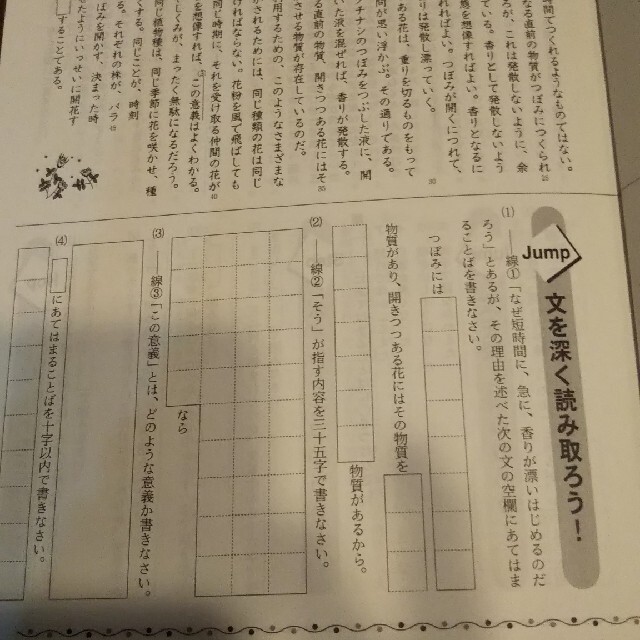 時間でつくれるようなものではない。
なる直前の物質がつぼみにつくられ
ろが、これは発散しないように、余
ている。香りとして発散しないよう
態を想像すればよい。香りとなるに
ればよい。つぼみが開くにつれて、
りは発散し漂っていく。
30
ある花は、重りを切るものをもって
問が思い浮かぶ。その通りである。
チナシのつぼみをつぶした液に、開
いた液を混ぜれば、香りが発散する。
る直前の物質、開きつつある花にはそ
35
させる物質が存在しているのだ。
用するための、このようなさまざまな
かされるためには、同じ種類の花は同じ
ければならない。花粉を風で飛ばしても
同じ時期に、それを受け取る仲間の花が
40
を想像すれば、③この意義はよくわかる。
しくみが、まったく無駄になるだろう。
同じ植物種は、同じ季節に花を咲かせ、種
くする。同じことが、時刻
る。それぞれの株が、バラ
45
ぼみを開かず、決まった時
たようにいっせいに開花す
することである。
Jump 文を深く読み取ろう！
(1) ――線①「なぜ短時間に、急に、香りが漂いはじめるのだ
ろう」とあるが、その理由を述べた次の文の空欄にあてはま
ることばを書きなさい。
つぼみには
物質があり、開きつつある花にはその物質を
物質があるから。
(2) ――線②「そう」が指す内容を三十五字で書きなさい。
なら
(3) ――線③「この意義」とは、どのような意義か書きなさい。
(4) にあてはまることばを十字以内で書きなさい。